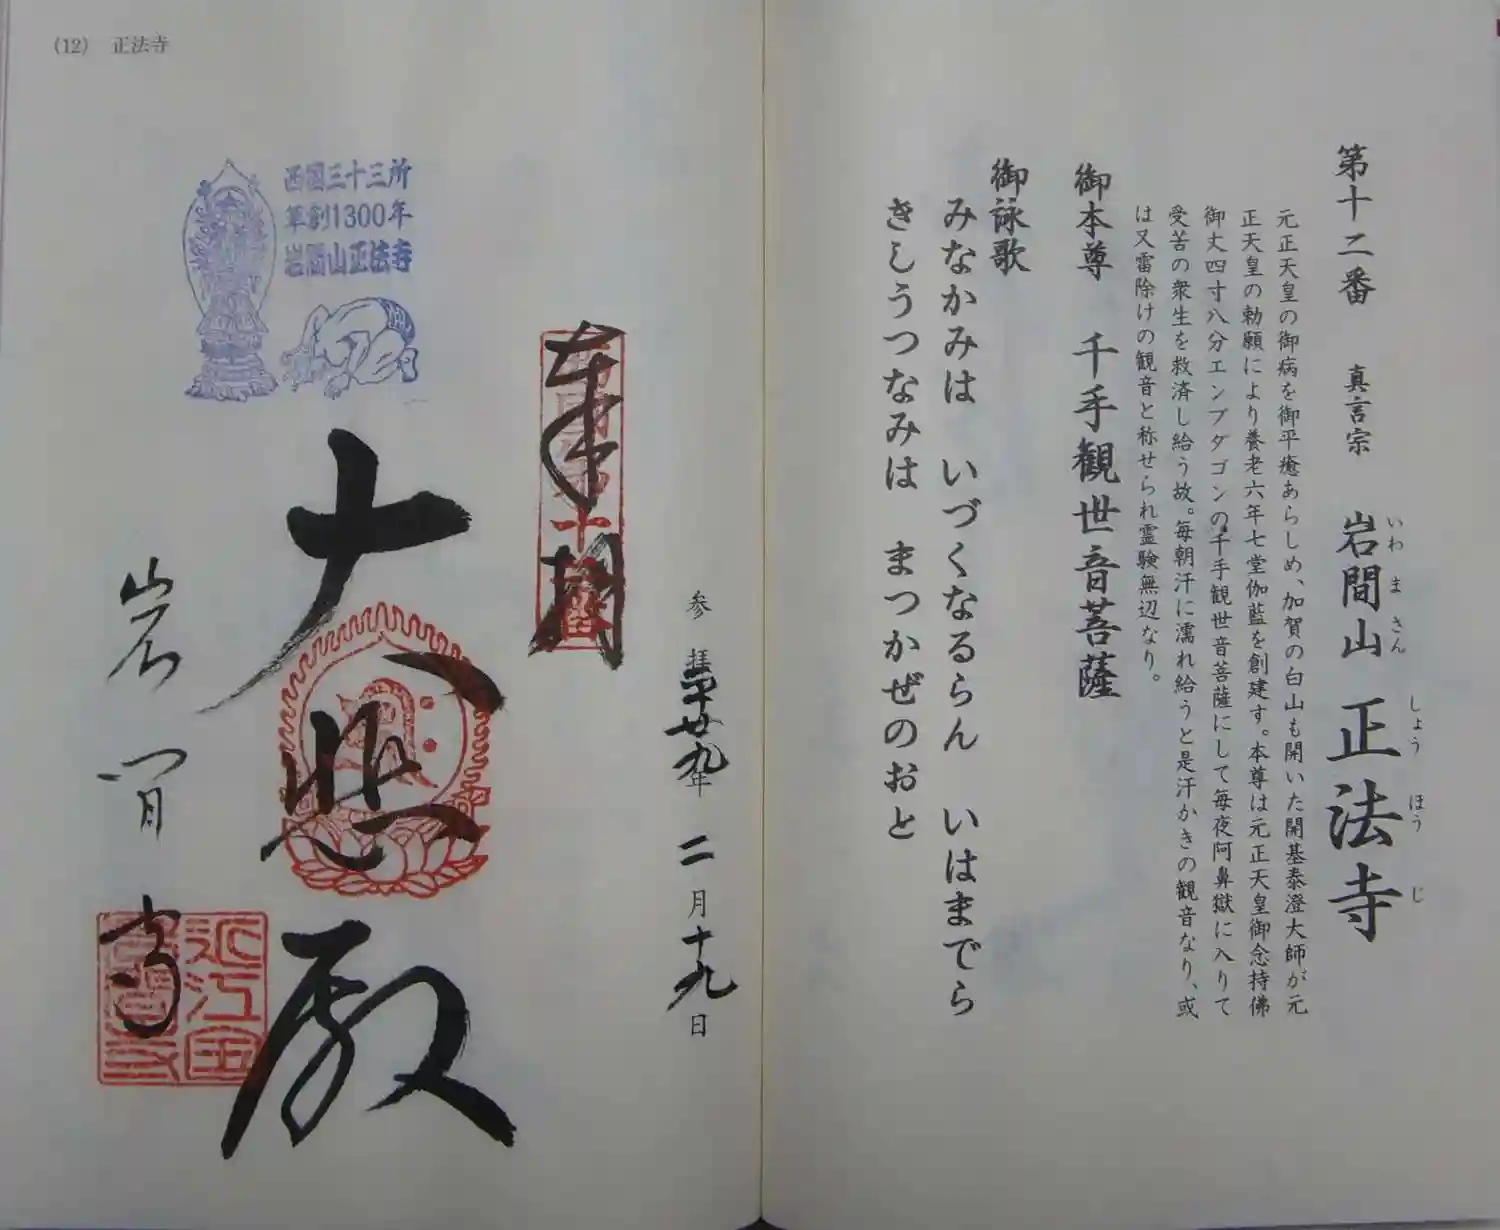 第十二番 真言宗 岩間山 正法寺
いわ ま さん しょう ほう じ
元正天皇の御病を御平癒あらしめ、加賀の白山も開いた開基泰澄大師が元
正天皇の勅願により養老六年七堂伽藍を創建す。本尊は元正天皇御念持佛
御丈四寸八分エンブダゴンの千手観世音菩薩にして毎夜阿鼻獄に入りて
受苦の衆生を救済し給う故。毎朝汗に濡れ給うと是汗かきの観音なり、或
は又雷除けの観音と称せられ霊験無辺なり。
御本尊 千手観世音菩薩
御詠歌
みなかみは いづくなるらん いはまでら
きしうつなみは まつかぜのおと
(12) 正法寺
参拝 廿九年 二月十九日
奉拝
大悲殿
岩間寺
西国三十三所
草創1300年
岩間山正法寺
近江国
岩間寺